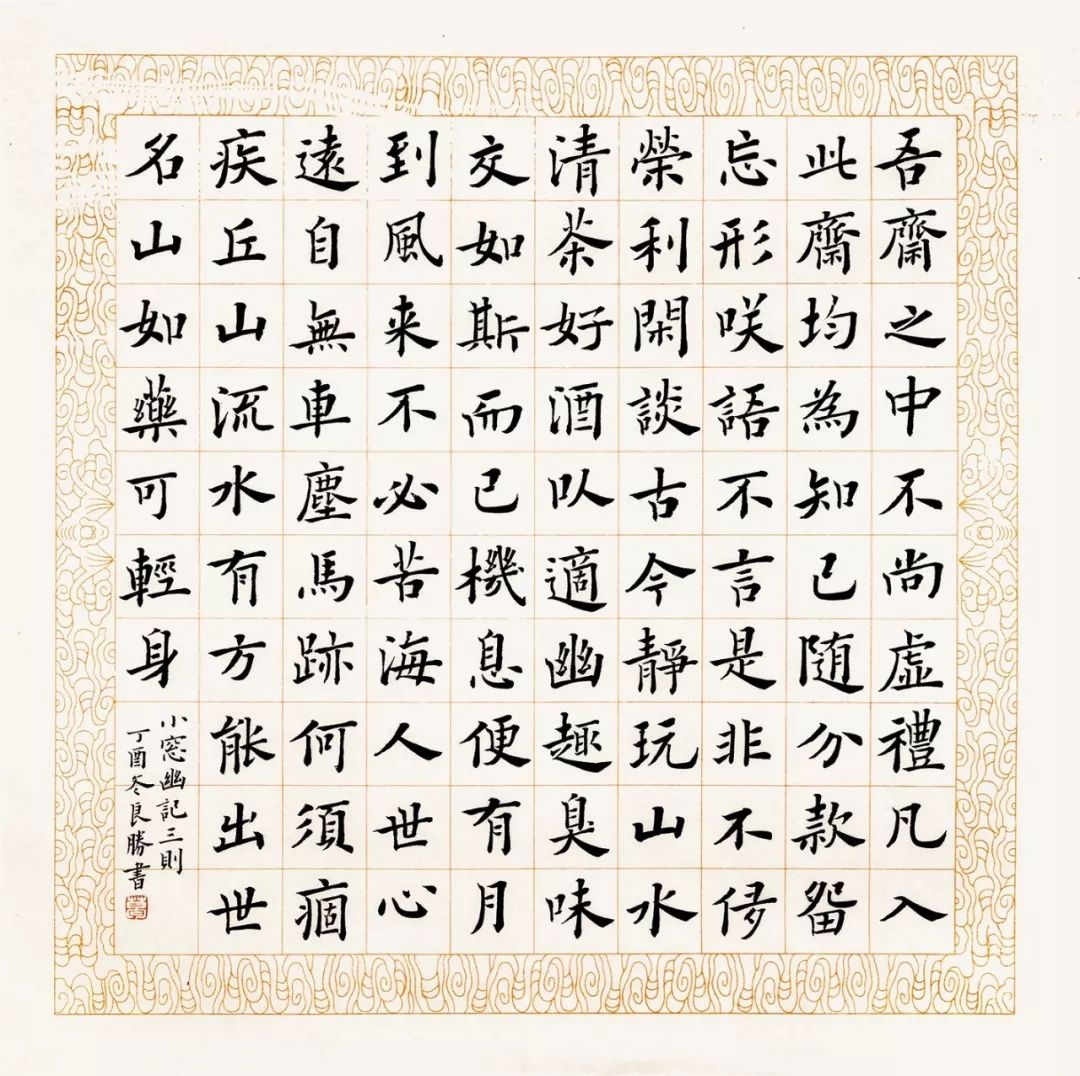 吾齋之中不尚虛禮凡入
此齋均為知己随分款留
忘形咲語不言是非不侈
榮利閑談古今靜玩山水
清茶好酒以適幽趣臭味
交如斯而已機息便有月
到風来不必苦海人世心
遠自無車塵馬跡何須痼
疾丘山流水有方能出世
名山如藥可輕身
小窓幽記三則
丁酉冬良勝書